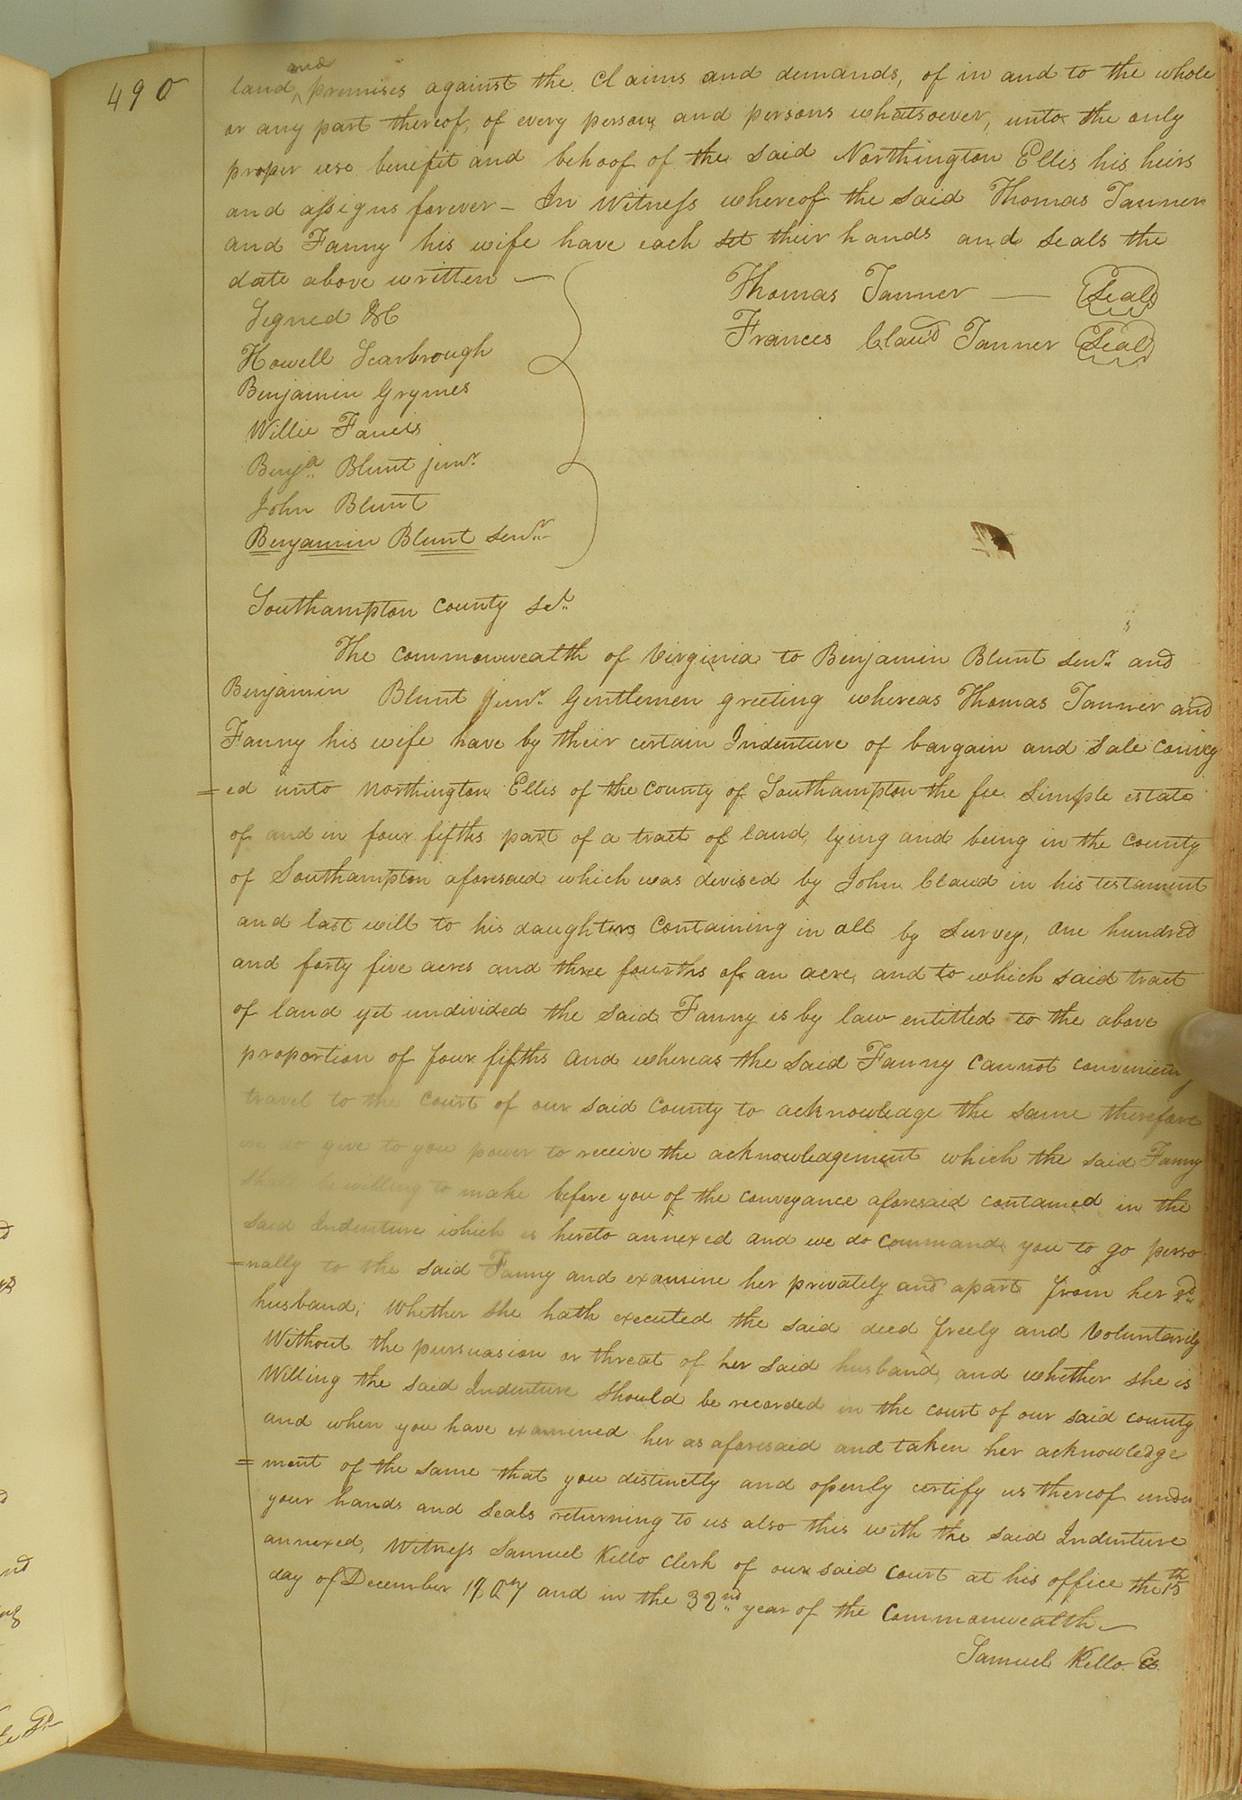 490
land and premises against the claims and demands, of in and to the whole
or any part thereof, of every person, and persons whatsoever, unto the only
proper use benefit and behoof of the said Northington Ellis his heirs
and assigns forever – In Witness whereof the said Thomas Tanner
and Fanny his wife have each set their hands and seals the
date above written —
Thomas Tanner — Seal
Signed &C
Frances Claud Tanner Seal
Howell Scarbrough
Benjamin Grymes
Willie Francis
Benja. Blunt junr.
John Blunt
Benjamin Blunt senr.
Southampton County Sct.
The commonwealth of Virginia to Benjamin Blunt senr. and
Benjamin Blunt junr. Gentlemen greeting whereas Thomas Tanner and
Fanny his wife have by their certain Indenture of bargain and sale convey
=ed unto Northington Ellis of the county of Southampton the fee simple estate
of and in four fifths part of a tract of land, lying and being in the county
of Southampton aforesaid which was devised by John Claud in his testament
and last will to his daughters containing in all by survey, one hundred
and forty five acres and three fourths of an acre, and to which said tract
of land yet undivided the said Fanny is by law entitled to the above
proportion of four fifths and whereas the said Fanny cannot conveniently
travel to the court of our said county to acknowledge the same therefore
we do give to you power to receive the acknowledgement which the said Fanny
shall be willing to make before you of the conveyance aforesaid contained in the
said Indenture which is hereto annexed and we do command you to go perso
=nally to the said Fanny and examine her privately and apart from her sd.
husband, Whether she hath executed the said deed freely and Voluntarily
Without the pursuasion or threat of her said husband, and whether she is
Willing the said Indenture should be recorded in the court of our said county
and when you have examined her as aforesaid and taken her acknowledge
=ment of the same that you distinctly and openly certify us thereof under
your hands and seals returning to us also this with the said Indenture
annexed, Witness Samuel Kello clerk of our said court at his office the 15th
day of December 1807 and in the 32nd. year of the commonwealth —
Samuel Kello Cs